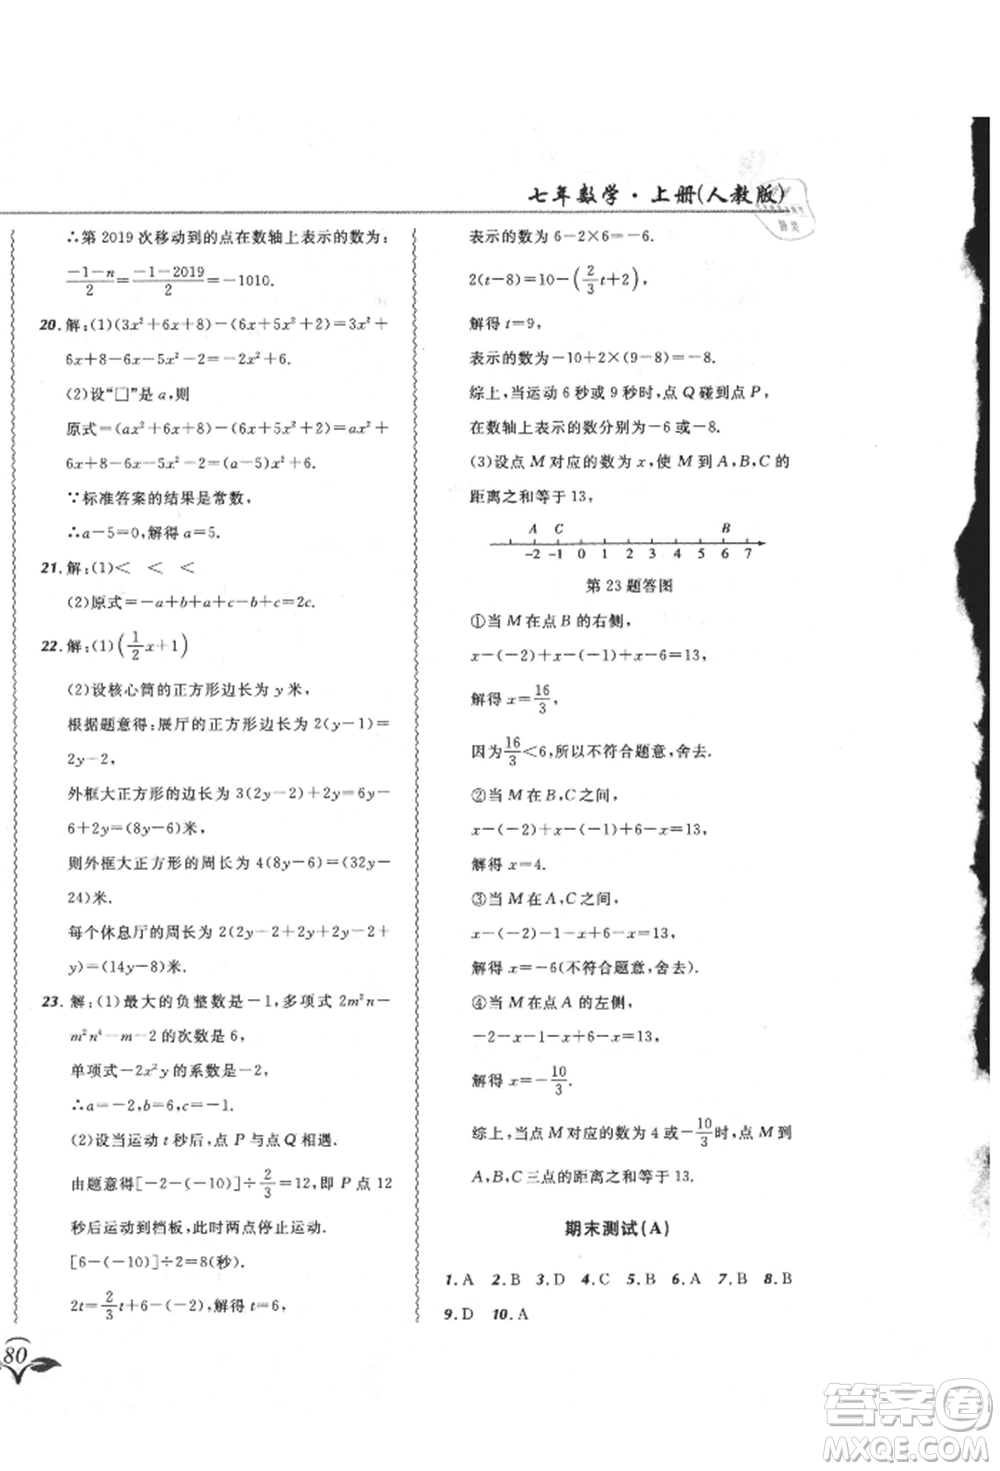 七年数学·上册(人教版)
∴第 2019 次移动到的点在数轴上表示的数为:
$\frac{-1-n}{2}=\frac{-1-2019}{2}=-1010.$
20. 解:(1)(3x²+6x+8)-(6x+5x²+2)=3x²+
6x+8-6x-5x²-2=-2x²+6.
(2)设“□”是 a,则
原式=(ax²+6x+8)-(6x+5x²+2)=ax²+
6x+8-6x-5x²-2=(a-5)x²+6.
∵标准答案的结果是常数,
∴a-5=0,解得 a=5.
21. 解:(1)< < <
(2)原式=-a+b+a+c-b+c=2c.
22. 解:(1)$(\frac{1}{2}x+1)$
(2)设核心筒的正方形边长为 y 米,
根据题意得:展厅的正方形边长为 2(y-1)=
2y-2,
外框大正方形的边长为 3(2y-2)+2y=6y-
6+2y=(8y-6)米,
则外框大正方形的周长为 4(8y-6)=(32y-
24)米.
每个休息厅的周长为 2(2y-2+2y+2y-2+
y)=(14y-8)米.
23. 解:(1)最大的负整数是-1,多项式 2m²n-
m²n⁴-m-2 的次数是 6,
单项式-2x²y 的系数是-2,
∴a=-2,b=6,c=-1.
(2)设当运动 t 秒后,点 P 与点 Q 相遇.
由题意得[-2-(-10)]÷$\frac{2}{3}$=12,即 P 点 12
秒后运动到挡板,此时两点停止运动.
[6-(-10)]÷2=8(秒).
2t=$\frac{2}{3}$t+6-(-2),解得 t=6,
80
表示的数为 6-2×6=-6.
2(t-8)=10-$(\frac{2}{3}t+2)$,
解得 t=9,
表示的数为-10+2×(9-8)=-8.
综上,当运动 6 秒或 9 秒时,点 Q 碰到点 P,
在数轴上表示的数分别为-6 或-8.
(3)设点 M 对应的数为 x,使 M 到 A,B,C 的
距离之和等于 13,
A C B
-2 -1 0 1 2 3 4 5 6 7
第 23 题答图
①当 M 在点 B 的右侧,
x-(-2)+x-(-1)+x-6=13,
解得 x=$\frac{16}{3}$,
因为$\frac{16}{3}$<6,所以不符合题意,舍去.
②当 M 在 B,C 之间,
x-(-2)+x-(-1)+6-x=13,
解得 x=4.
③当 M 在 A,C 之间,
x-(-2)-1-x+6-x=13,
解得 x=-6(不符合题意,舍去).
④当 M 在点 A 的左侧,
-2-x-1-x+6-x=13,
解得 x=-$\frac{10}{3}$.
综上,当点 M 对应的数为 4 或-$\frac{10}{3}$时,点 M 到
A,B,C 三点的距离之和等于 13.
期末测试(A)
1. A 2. B 3. D 4. C 5. B 6. A 7. B 8. B
9. D 10. A
答案卷
MXQE.COM